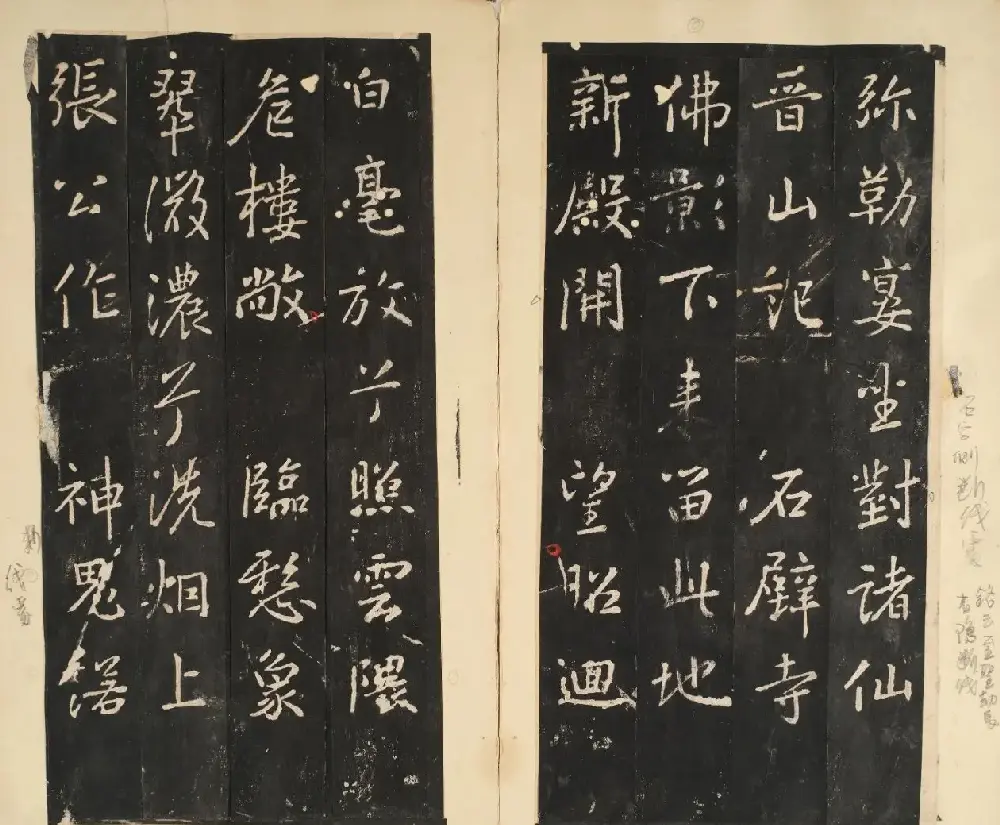 弥勒宴坐對諸仙
晋山記 石壁寺
佛影下来留此地
新殿開 望昭迴
白毫放兮照雲隈
危樓敞 臨懸象
翠微濃兮洗烟上
張公作 神鬼